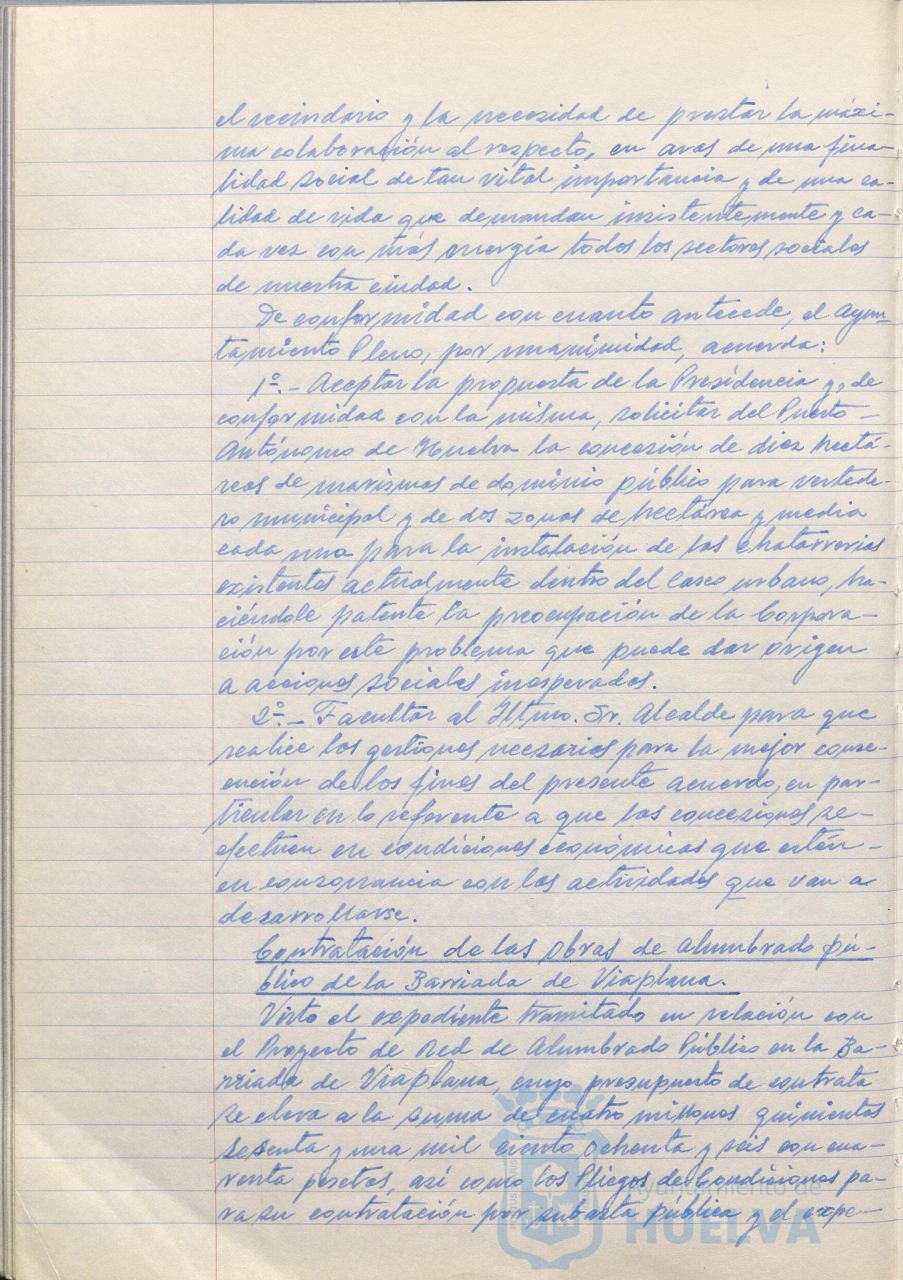 el vecindario y la necesidad de prestar la máxi-
ma colaboración al respecto, en aras de una fina-
lidad social de tan vital importancia y de una ca-
lidad de vida que demandan insistentemente y ca-
da vez con más energía todos los sectores sociales
de nuestra ciudad.
De conformidad con cuanto antecede, el Ayun-
tamiento Pleno, por unanimidad, acuerda:
1º.- Aceptar la propuesta de la Presidencia y, de
conformidad con la misma, solicitar del Puerto
Autónomo de Huelva la concesión de diez hectá-
reas de marismas de dominio público para vertede-
ro municipal y de dos zonas de hectárea y media
cada una para la instalación de las chatarrerias
existentes actualmente dentro del casco urbano, ha-
ciéndole patente la preocupación de la Corpora-
ción por este problema que puede dar origen
a acciones sociales inesperadas.
2º.- Facultar al Iltmo. Sr. Alcalde para que
realice las gestiones necesarias para la mejor conse-
cución de los fines del presente acuerdo, en par-
ticular en lo referente a que las concesiones se
efectuen en condiciones económicas que estén
en consonancia con las actividades que van a
desarrollarse.
Contratación de las Obras de Alumbrado pú-
blico de la Barriada de Viaplana.
Visto el expediente tramitado en relación con
el Proyecto de Red de Alumbrado Público en la Ba-
rriada de Viaplana, cuyo presupuesto de contrata
se eleva a la suma de cuatro millones quinientas
sesenta y una mil ciento ochenta y seis con cua-
renta pesetas, así como los Pliegos de Condiciones pa-
ra su contratación por subasta pública y el expe-
Ayuntamiento de
HUELVA